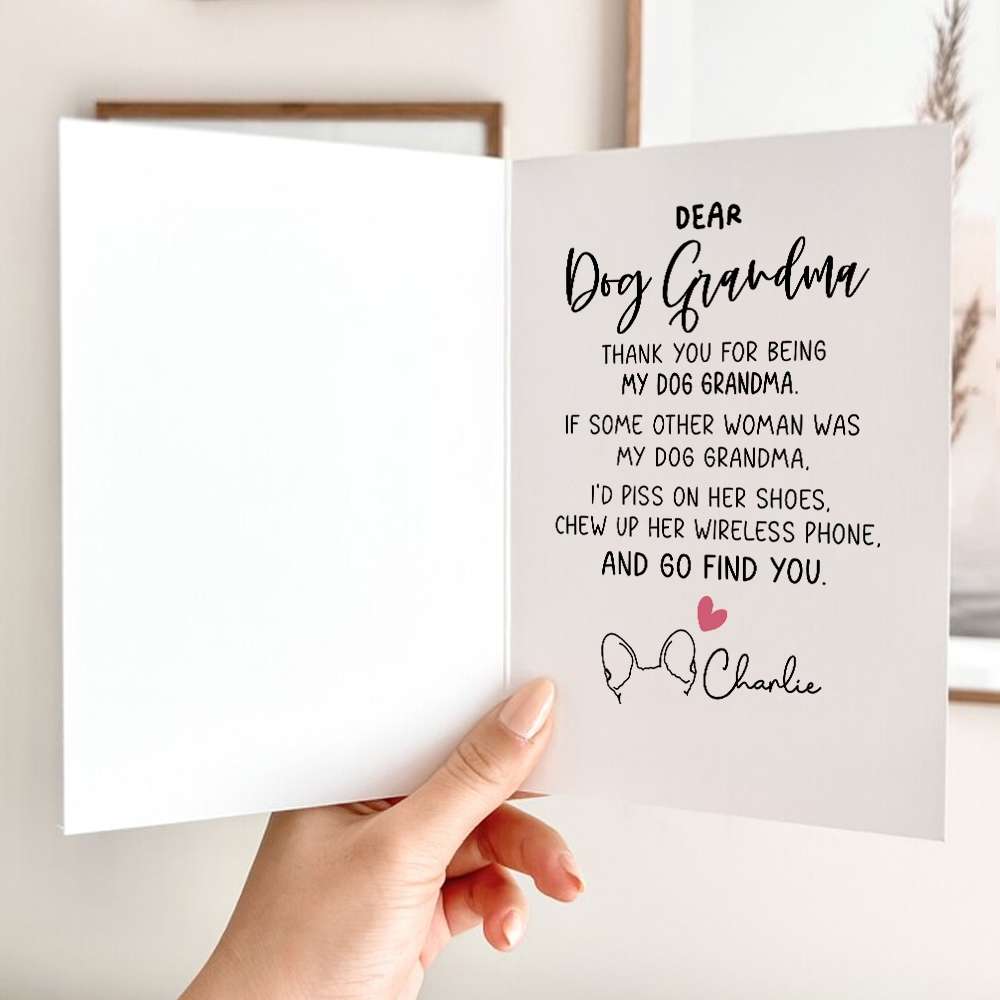 DEAR
Dog Grandma
THANK YOU FOR BEING
MY DOG GRANDMA.
IF SOME OTHER WOMAN WAS
MY DOG GRANDMA,
I'D PISS ON HER SHOES,
CHEW UP HER WIRELESS PHONE,
AND GO FIND YOU.
Charlie